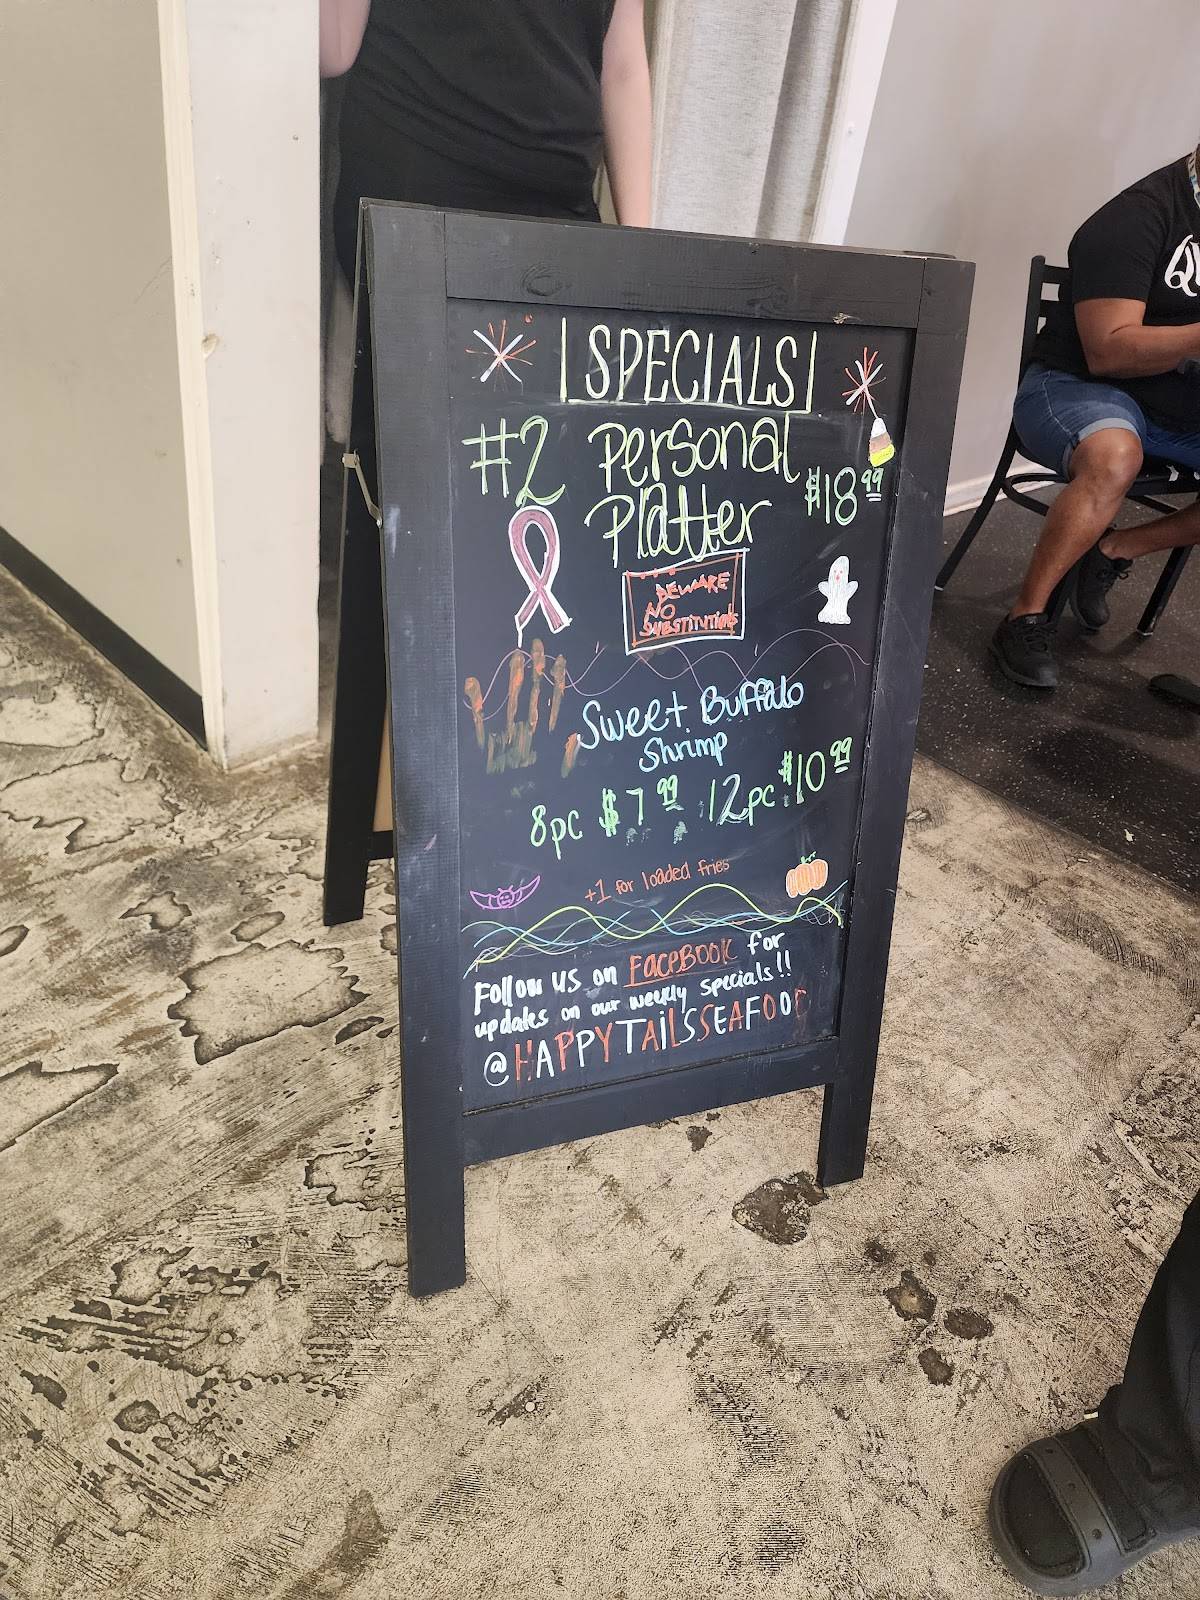 SPECIALS
#2 Personal
Platter $18 99
BEWARE
NO
SUBSTITUTIONS
Sweet Buffalo
Shrimp
8pc $7 99 12pc $10 99
+1 for loaded fries
Follow us on FACEBOOK for
updates on our weekly specials!!
@HAPPYTAILSSEAFOOD